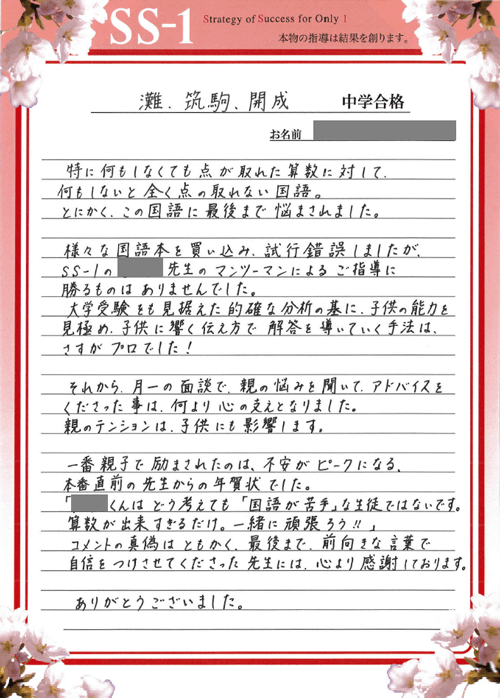 SS-1
Strategy of Success for Only 1
本物の指導は結果を創ります。
灘、筑駒、開成 中学合格
お名前
特に何もしなくても点が取れた算数に対して、
何もしないと全く点の取れない国語。
とにかく、この国語に最後まで悩まされました。
様々な国語本を買い込み、試行錯誤しましたが、
SS-1の 先生のマンツーマンによるご指導に
勝るものはありませんでした。
大学受験をも見据えた的確な分析の基に、子供の能力を
見極め、子供に響く伝え方で解答を導いていく手法は、
さすがプロでした!
それから、月一の面談で、親の悩みを聞いて、アドバイスを
くださった事は、何より心の支えとなりました。
親のテンションは、子供にも影響します。
一番親子で励まされたのは、不安がピークになる、
本番直前の先生からの年賀状でした。
「 くんはどう考えても「国語が苦手」な生徒ではないです。
算数が出来すぎるだけ。一緒に頑張ろう!!」
コメントの真偽はともかく、最後まで、前向きな言葉で
自信をつけさせてくださった先生には、心より感謝しております。
ありがとうございました。